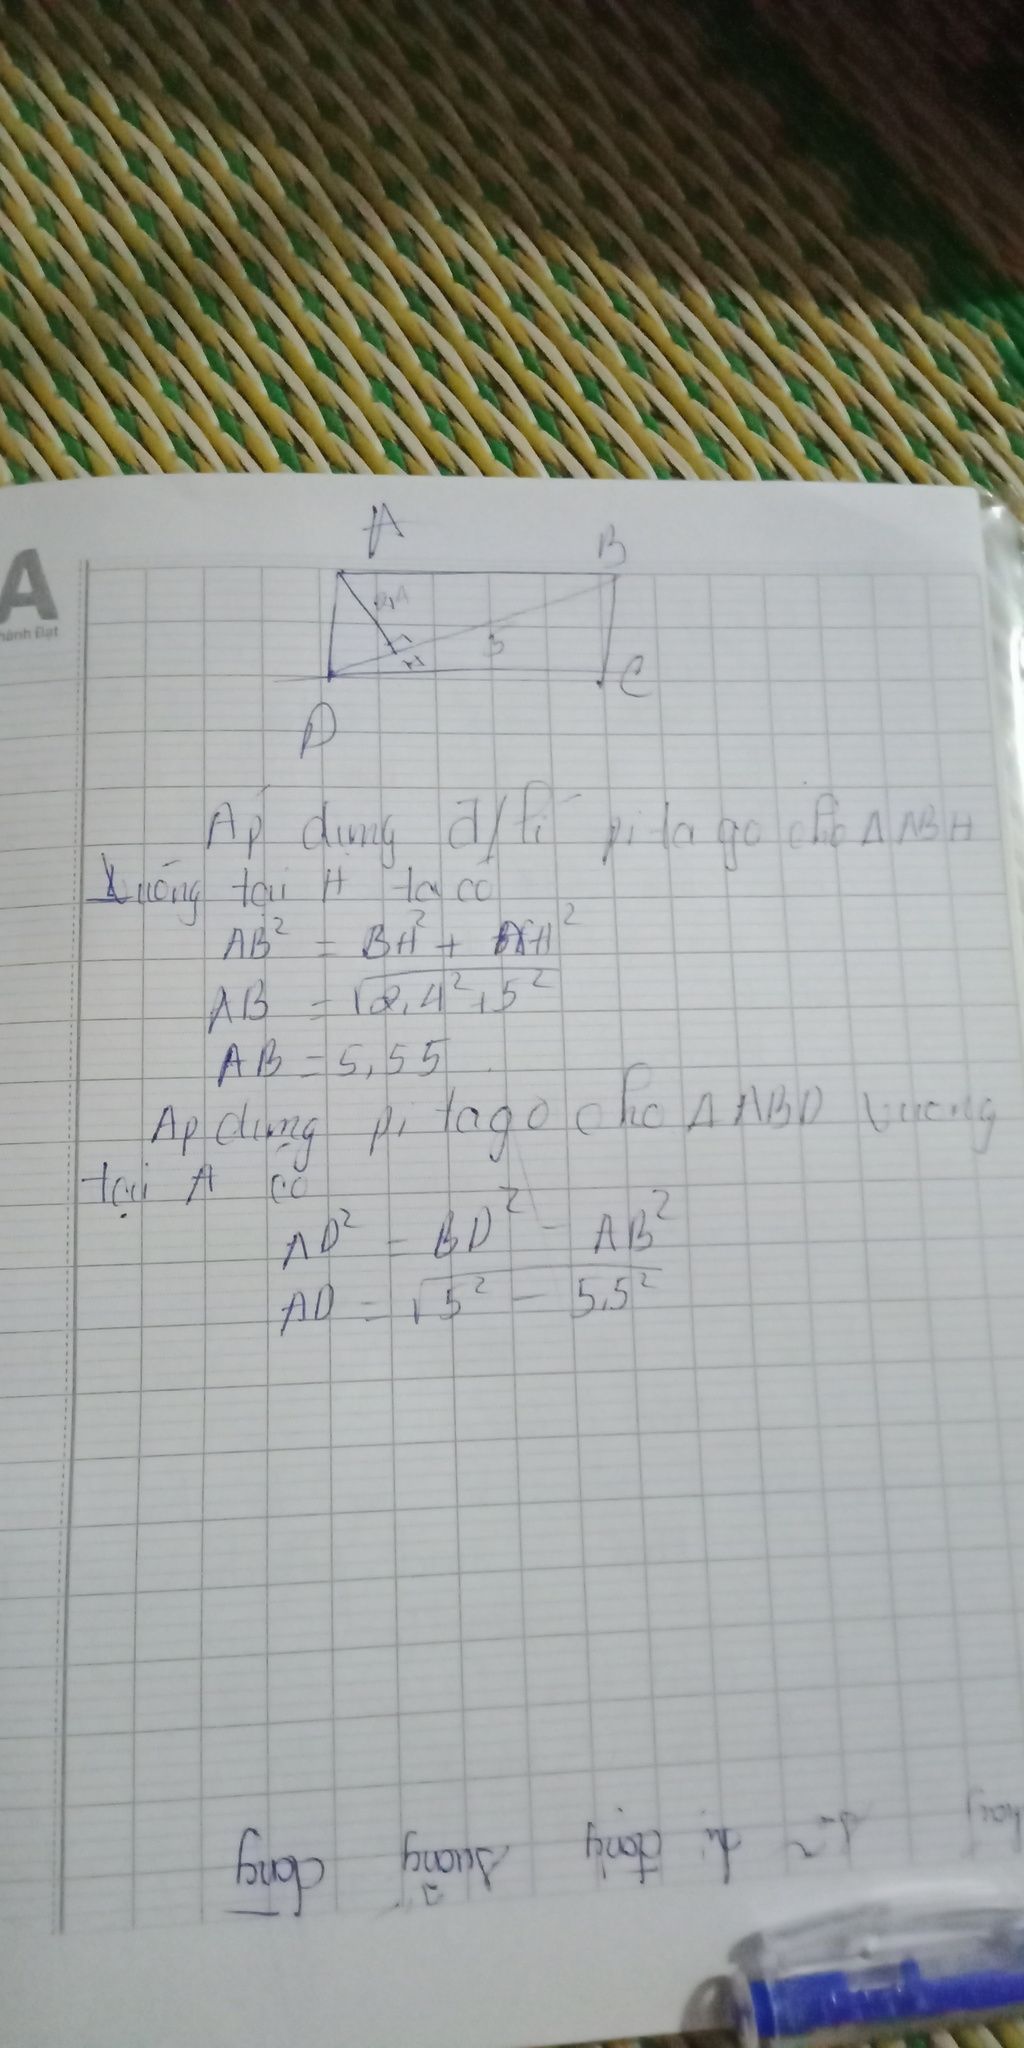 A
hành Đạt
A
B
H
5
C
D
Áp dụng đ/lí pi ta go cho Δ ABH
Vuông tại H ta có
AB² = BH² + AH²
AB = √2,4² + 5²
AB = 5,55
Ap dụng pi tago cho Δ ABD vuông
tại A có
AD² = BD² - AB²
AD = √5² - 5,5²
di động xuống dòng